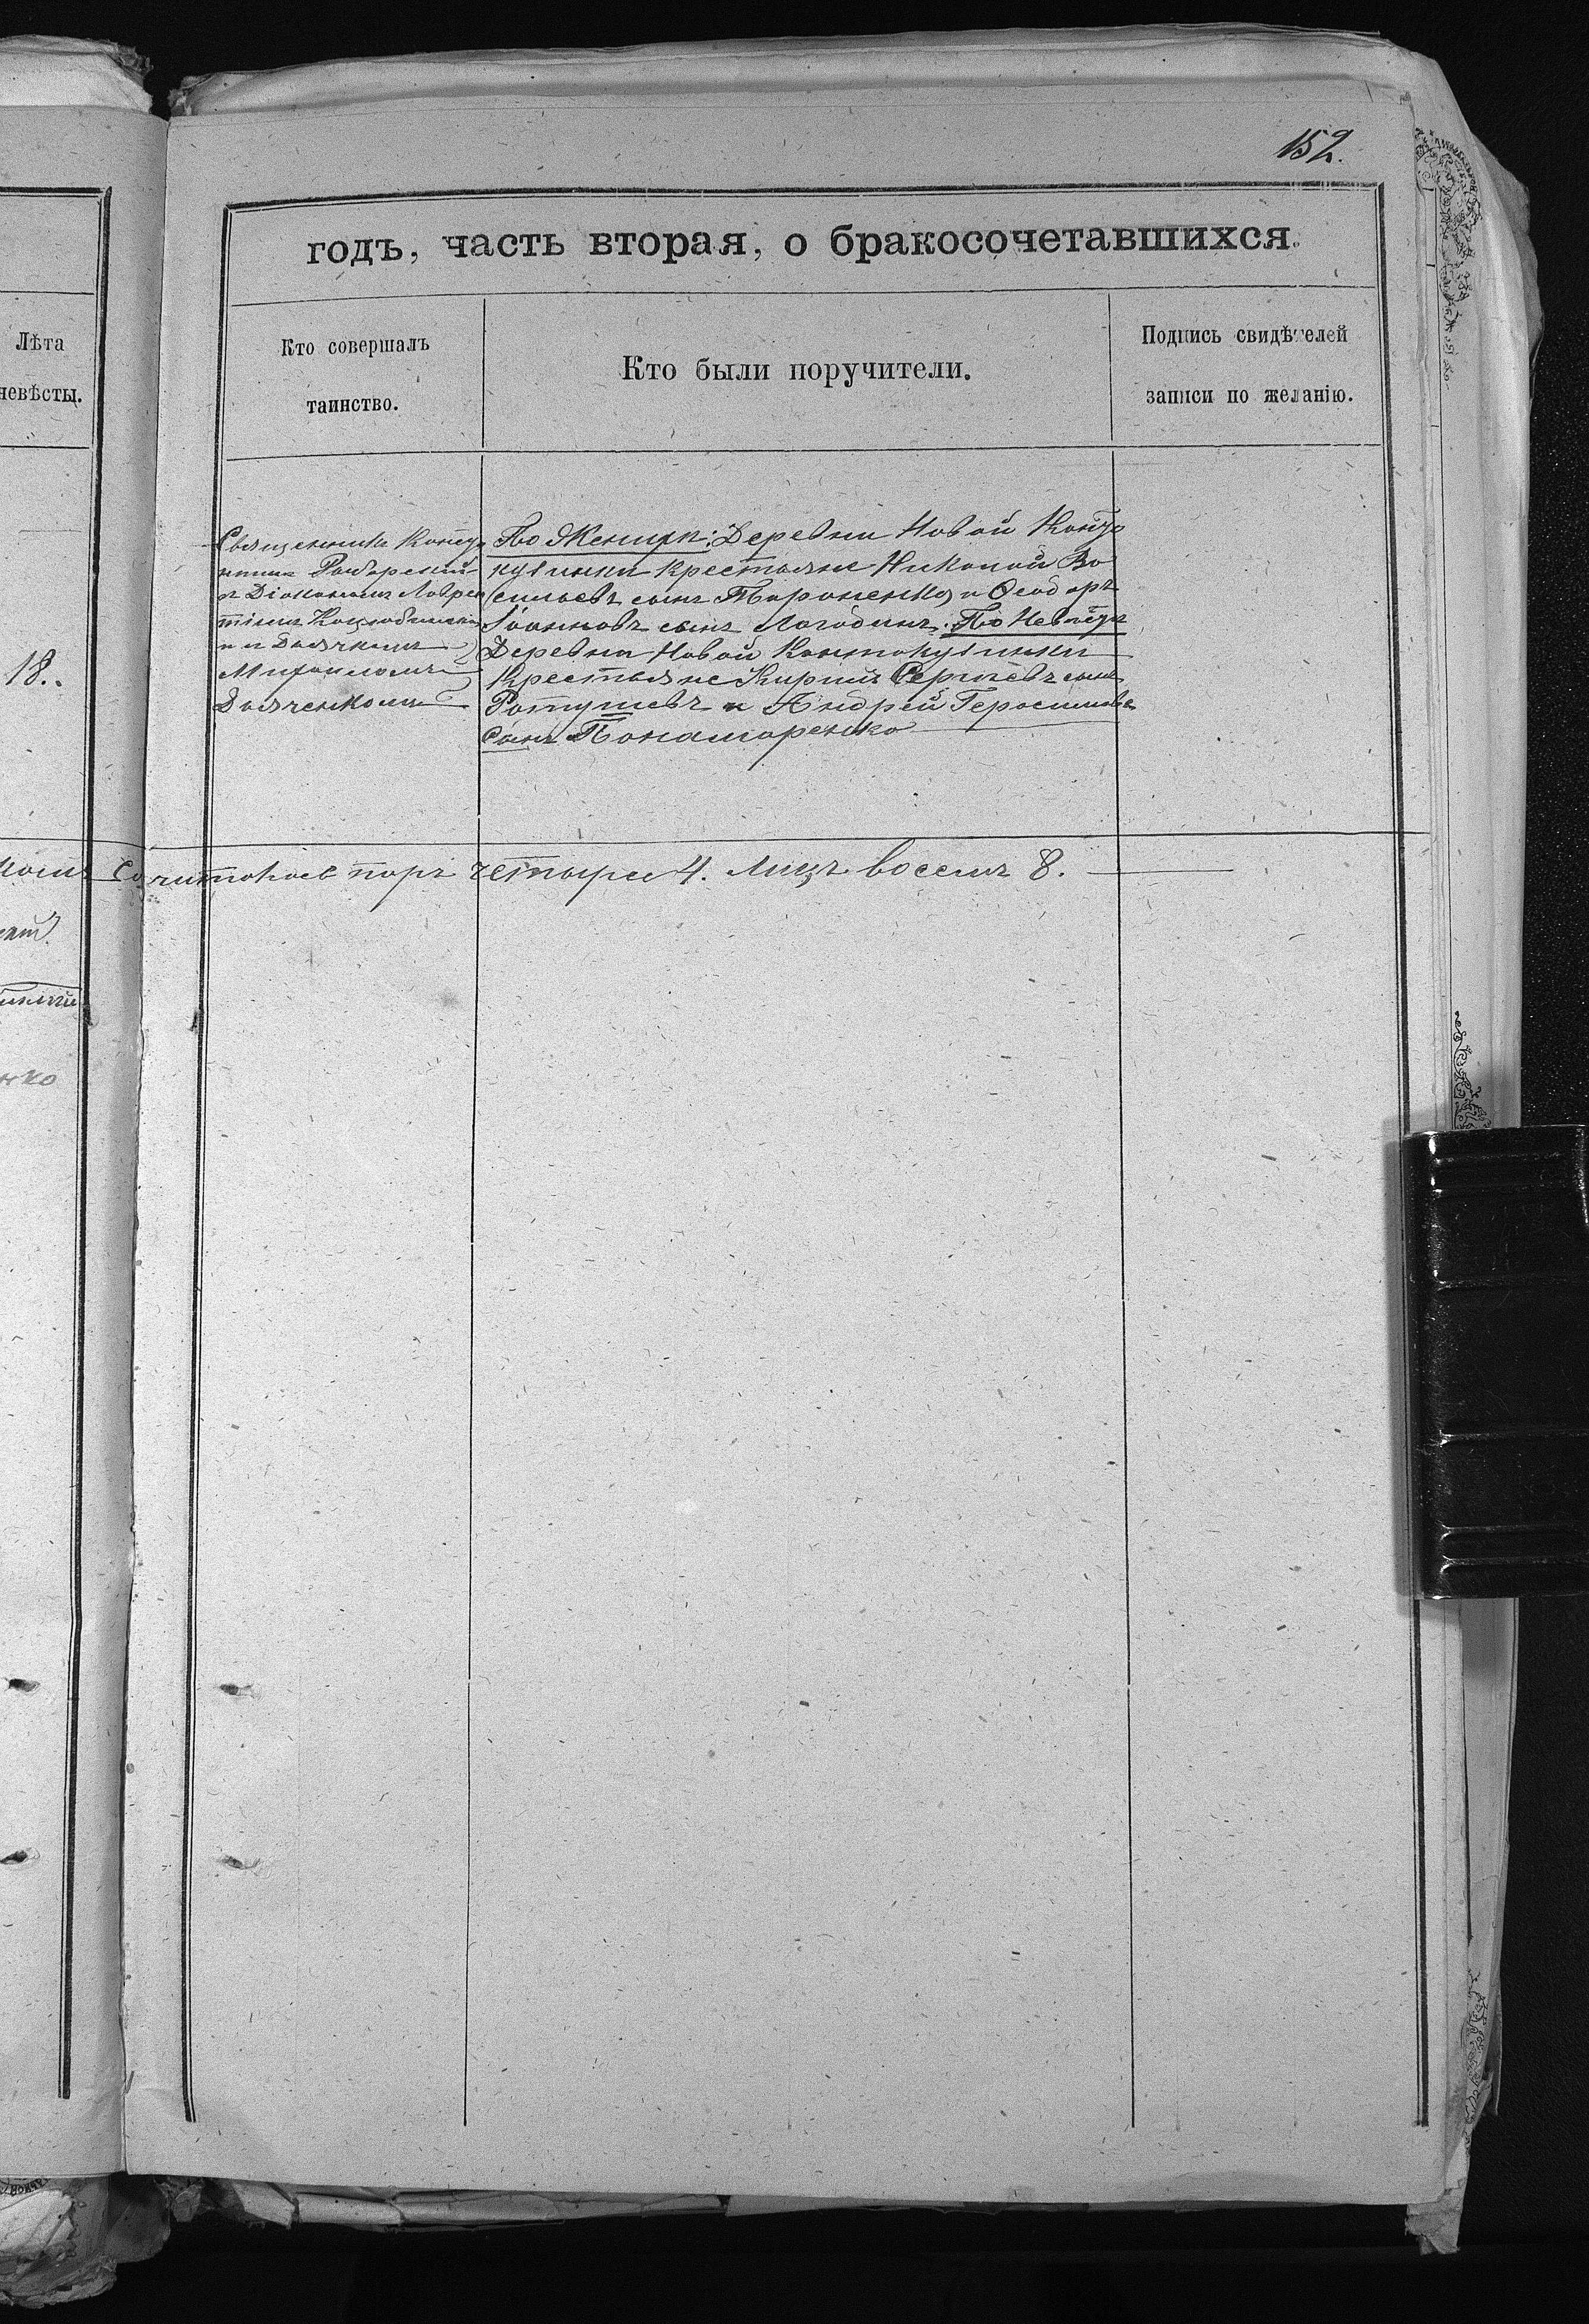 152.
годъ, часть вторая, о бракосочетавшихся.
Лѣта
невѣсты.
Кто совершалъ
таинство.
Кто были поручители.
Подпись свидѣтелей
записи по желанію.
18.
Священникъ
съ Діакономъ Лаврен
тіемъ
и Дьячкомъ
Михаиломъ
Дьяченкомъ
По Женихѣ: Деревни Новой Конто
кузинки крестьяне Николай Ва
сильевъ сынъ и Ѳеодоръ
Іоанновъ сынъ Логодинъ. По Невѣстѣ
Деревни Новой Контокузинки
Крестьяне Кирилъ Сергѣевъ сынъ
Ратушевъ и Андрей Герасимовъ
сынъ Понамаренко
Сочитокаевъ паръ четыре 4. Лицъ восемь 8.
нко